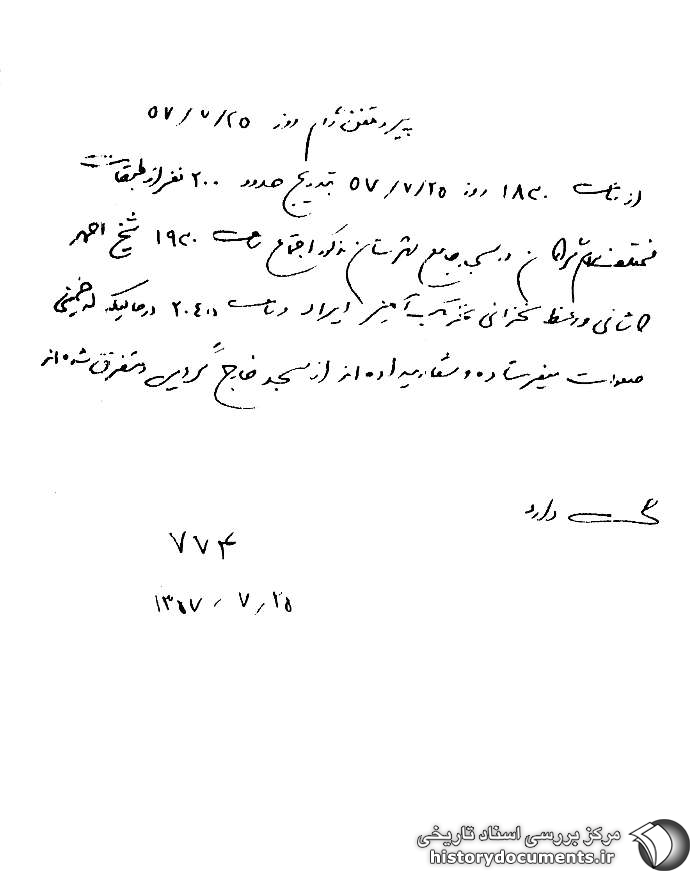 پیرو تلفنگرام روز ۵۷/۷/۲۵
از ساعت ۱۸۳۰ روز ۵۷/۷/۲۵ بتدریج حدود ۲۰۰ نفر از طبقات
مختلف مردم در مسجد جامع شهرستان مذکور اجتماع ساعت ۱۹۳۰ شیخ احمد
کاشانی واعظ سخنرانی تحریک آمیز ایراد و ساعت ۲۰۴۰ در حالیکه له خمینی
صلوات میفرستاده و شعار میداده‌اند از مسجد خارج گردیده و متفرق شده‌اند
دارد
۷۷۴
۱۳۵۷/۷/۲۵
مرکز بررسی اسناد تاریخی
historydocuments.ir